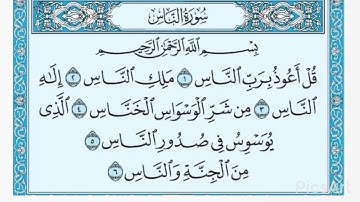 سُورَةُ النَّاسِ
بِسْمِ اللَّهِ الرَّحْمَٰنِ الرَّحِيمِ
قُلْ أَعُوذُ بِرَبِّ النَّاسِ ١ مَلِكِ النَّاسِ ٢ إِلَٰهِ
النَّاسِ ٣ مِن شَرِّ الْوَسْوَاسِ الْخَنَّاسِ ٤ الَّذِي
يُوَسْوِسُ فِي صُدُورِ النَّاسِ ٥
مِنَ الْجِنَّةِ وَالنَّاسِ ٦
PicsArt